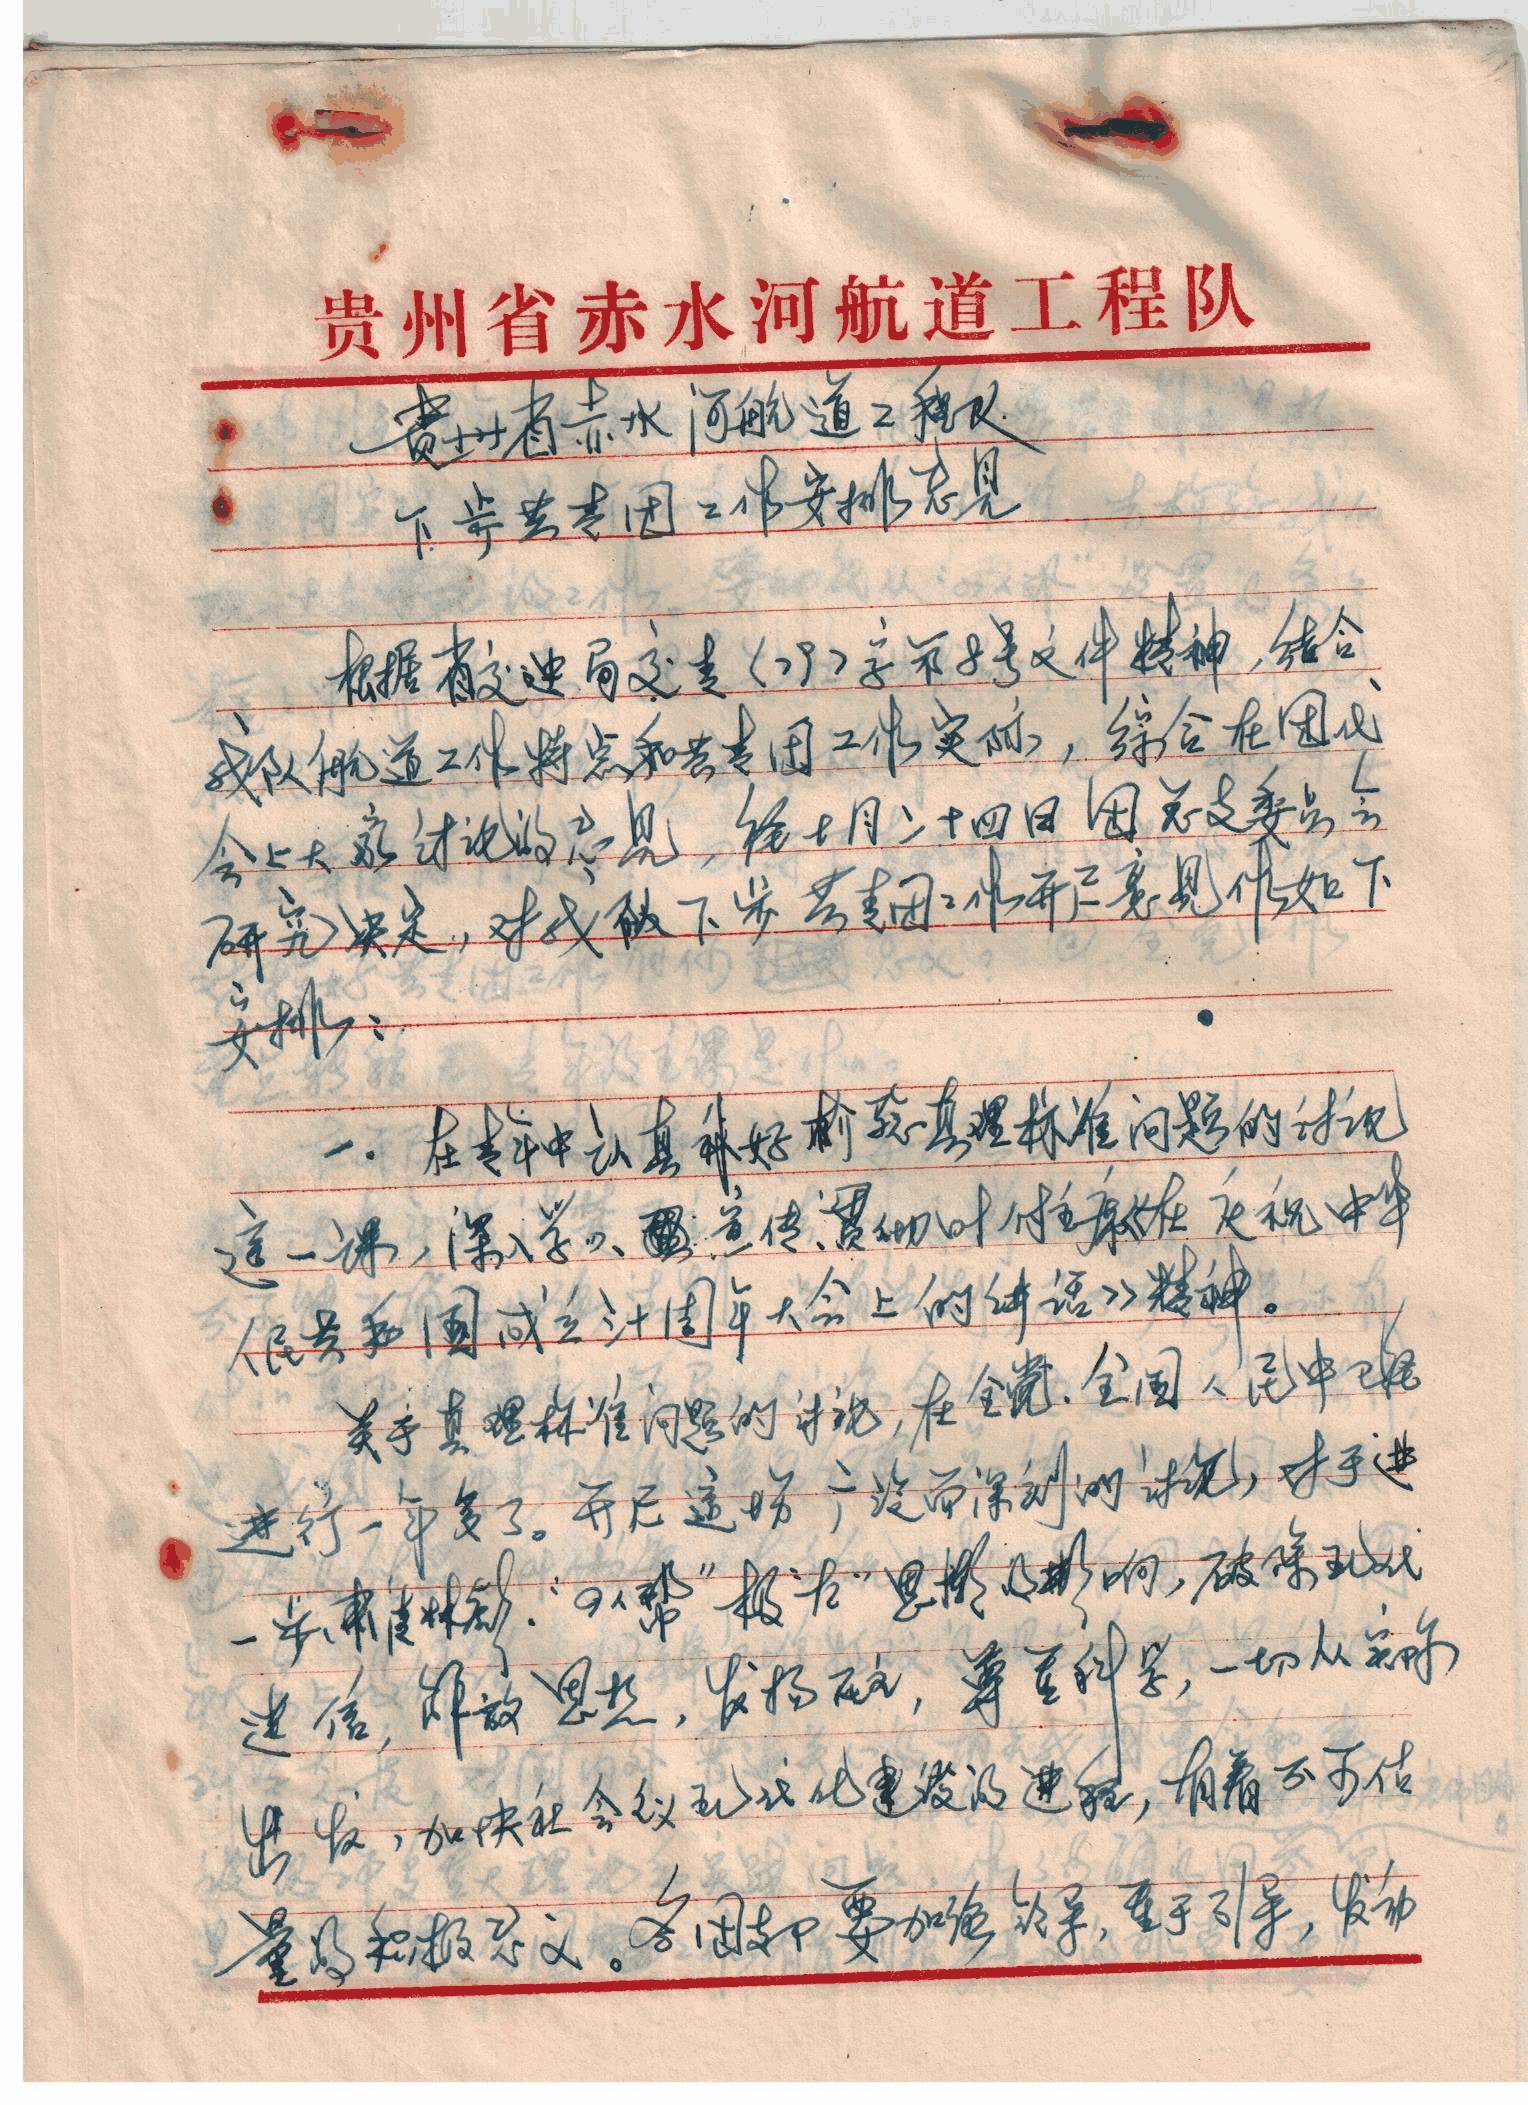 贵州省赤水河航道工程队
贵州省赤水河航道工程队
下步共青团工作安排意见
根据省交通局交青(79)字第8号文件精神,结合
我队航道工作特点和共青团工作实际,综合在团代
会上大家讨论的意见,经十月二十四日团总支委员会
研究决定,对我队下步共青团工作开展意见作如下
安排:
一.在青年中认真补好检验真理标准问题的讨论
这一课,深入学习、宣传、贯彻叶付主席《在庆祝中华
人民共和国成立三十周年大会上的讲话》精神。
关于真理标准问题的讨论,在全党.全国人民中已经
进行一年多了。开展这场广泛而深刻的讨论,对于进
一步肃清林彪.“四人帮”极“左”思想的影响,破除现代
迷信,解放思想,发扬民主,尊重科学,一切从实际
出发,加快社会主义现代化建设的进程,有着不可估
量的积极意义。各团支部要加强领导,重于引导,发动